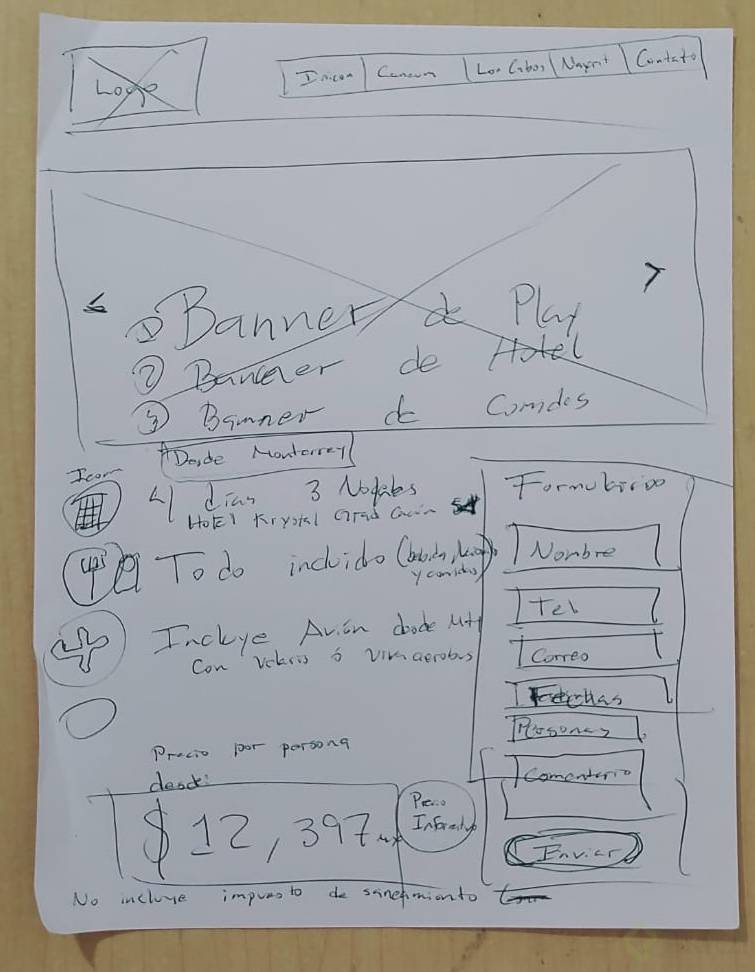 Logo
Inicio Cancun Los Cabos Nayarit Contato
< >
① Banner de Play
② Banner de Hotel
③ Banner de Comidas
Desde Monterrey
Icon
4 días 3 Noches
Hotel Krystal Grad Cacún
Todo incluido (bebida,
y comidas)
Incluye Avión desde Mty
con Volaris ó vivaaerobus
Precio por persona
desde:
$12,397 mx
Precio
Informativo
No incluye impuesto de saneamiento
Formulario
Nombre
Tel
Correo
Fechas
Personas
Comentario
Enviar